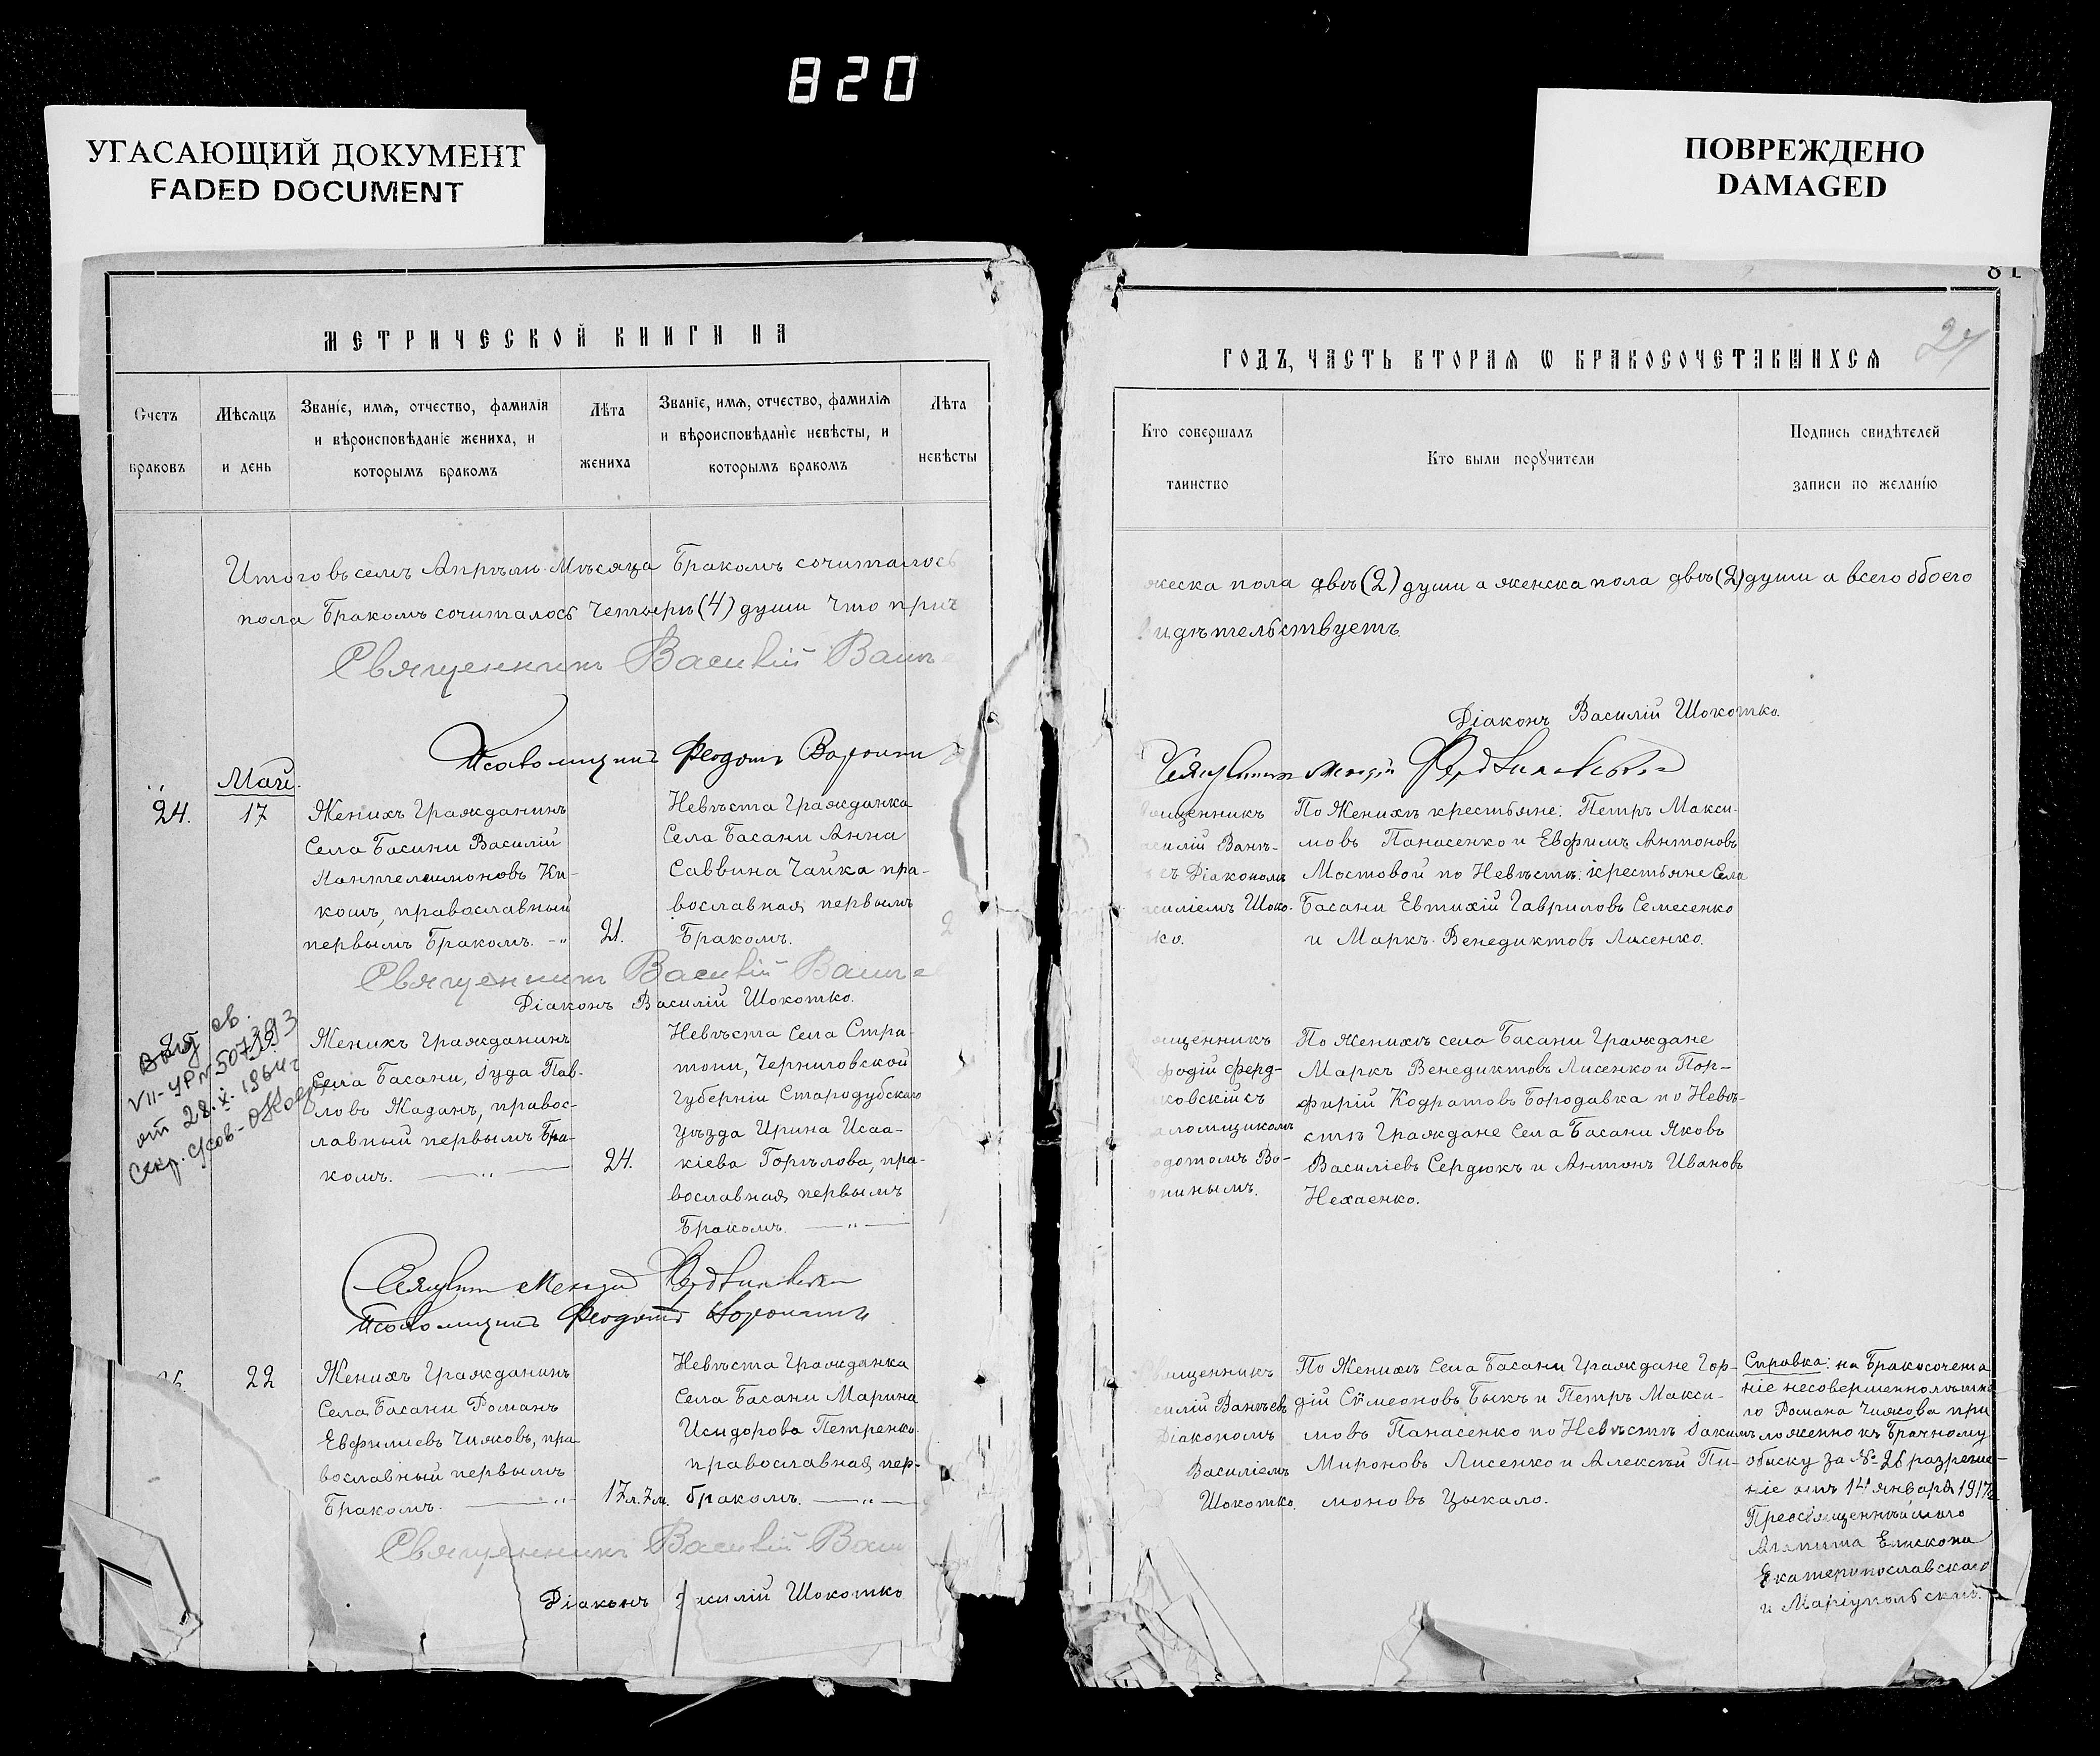 820
УГАСАЮЩИЙ ДОКУМЕНТ
FADED DOCUMENT
ПОВРЕЖДЕНО
DAMAGED
МЕТРИЧЕСКОЙ КНИГИ НА
Счетъ браковъ
Мѣсяцъ и день
Званіе, имя, отчество, фамилія
и вѣроисповѣданіе жениха, и
которымъ бракомъ
Лѣта жениха
Званіе, имя, отчество, фамилія
и вѣроисповѣданіе невѣсты, и
которымъ бракомъ
Лѣта невѣсты
Итого въ семъ Апрѣлѣ Мѣсяца Бракомъ сочиталось
пола Бракомъ сочиталось Четыери (4) души Что прич
Священникъ Василій Ванъ
Псаломщикъ Феодотъ Воронин
Май.
24.
17
Женихъ Гражданинъ
Села Басани Василій
Пантелеимоновъ Ки-
кошъ, православный
первымъ Бракомъ.
21.
Невѣста Гражданка
Села Басани Анна
Саввина Чайка пра-
вославная первымъ
Бракомъ.
2
Священникъ Василій Ванъе
Діаконъ Василій Шокотко.
Выд св.
VII-УР № 507393
от 28.X.1964 г
Секр.
Женихъ Гражданинъ
Села Басани, Іуда Пав-
ловъ Жаданъ, правос-
лавный первымъ Бра-
комъ.
24.
Невѣста Села Стра-
топи, Черниговской
Губерніи Стародубскаго
Уѣзда Ирина Исаа-
кіева Горѣлова, пра-
вославная первымъ
Бракомъ.
Псаломщикъ Феодотъ Воронинъ
22
Женихъ Гражданинъ
Села Басани Романъ
Евфиміевъ Чижовъ, пра
вославный первымъ
Бракомъ.
17 л. 7 м.
Невѣста Гражданка
Села Басани Марина
Исидорова Петренко
православная, пер-
бракомъ.
Священникъ Василій Ван
Діаконъ силій Шокотко
81
24
ГОДЪ, ЧАСТЬ ВТОРАЯ Ѡ БРАКОСОЧЕТАВШИХСЯ
Кто совершалъ
таинство
Кто были порꙋчители
Подпись свидѣтелей
записи по желанію
жеска пола двѣ (2) души а женска пола двѣ (2) души а всего обоего
идѣтельствуетъ.
Діаконъ Василій Шокотко.
ященникъ
силій Ванъ-
съ Діакономъ
силіемъ Шоко-
ко.
По Женихѣ крестьяне: Петръ Макси-
мовъ Панасенко и Евфимъ Антоновъ
Мостовой по Невѣстѣ: крестьяне Села
Басани Евтихій Гавриловъ Семесенко
и Маркъ Венедиктовъ Лисенко.
ященникъ
фодій Ферд-
ковскій съ
аломщикомъ
одотомъ Во-
онинымъ.
По Женихѣ села Басани Граждане
Маркъ Венедиктовъ Лисенко и Пор-
фирій Кодратовъ Бородавка по Невѣ-
стѣ Граждане Села Басани Яковъ
Василіевъ Сердюкъ и Антонъ Ивановъ
Нехаенко.
ященникъ
силій Ванъевъ
Діакономъ
Василіемъ
Шокотко.
По Женихѣ Села Басани Граждане Гор-
дій Сѵмеоновъ Быкъ и Петръ Макси-
мовъ Панасенко по Невѣстѣ Іакимъ
Мироновъ Лисенко и Алексѣй Пи-
моновъ Цыкало.
Справка: на Бракосочета
ніе несовершеннолѣтня
го Романа Чижова при
ложенно къ Брачному
обыску за № 26 разреше-
ніе отъ 14 января 1917 г.
Преосвященнѣйшаго
Агапита Епископа
Екатеринославскаго
и Маріупольскаго.